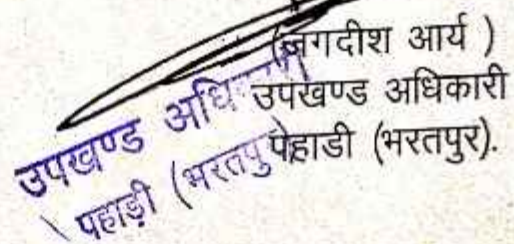 (जगदीश आर्य )
उपखण्ड अधिकारी
पहाडी (भरतपुर).
उपखण्ड अधिकारी
पहाड़ी (भरतपु